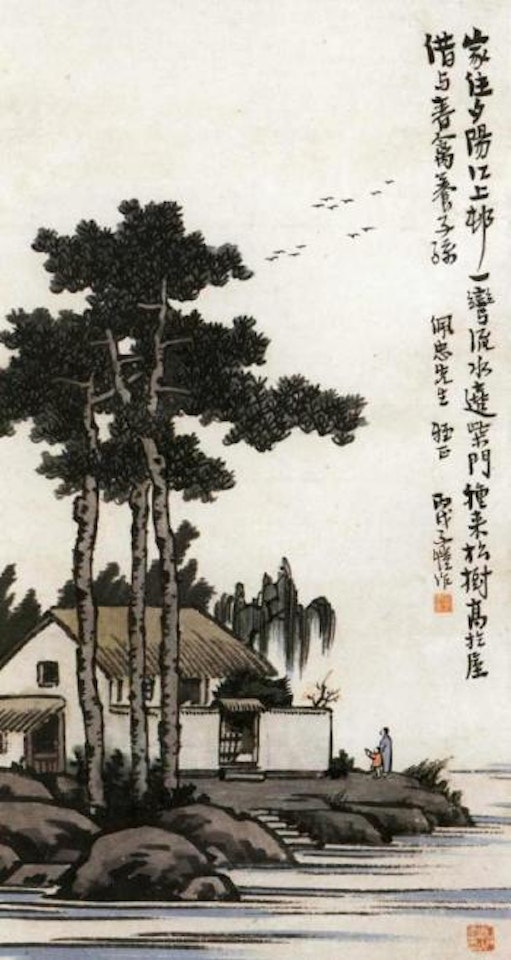 家住夕陽江上邨一彎流水遶柴門種來松樹高於屋
借与春禽養子孫
佩忠先生 雅正 丙戌子愷作